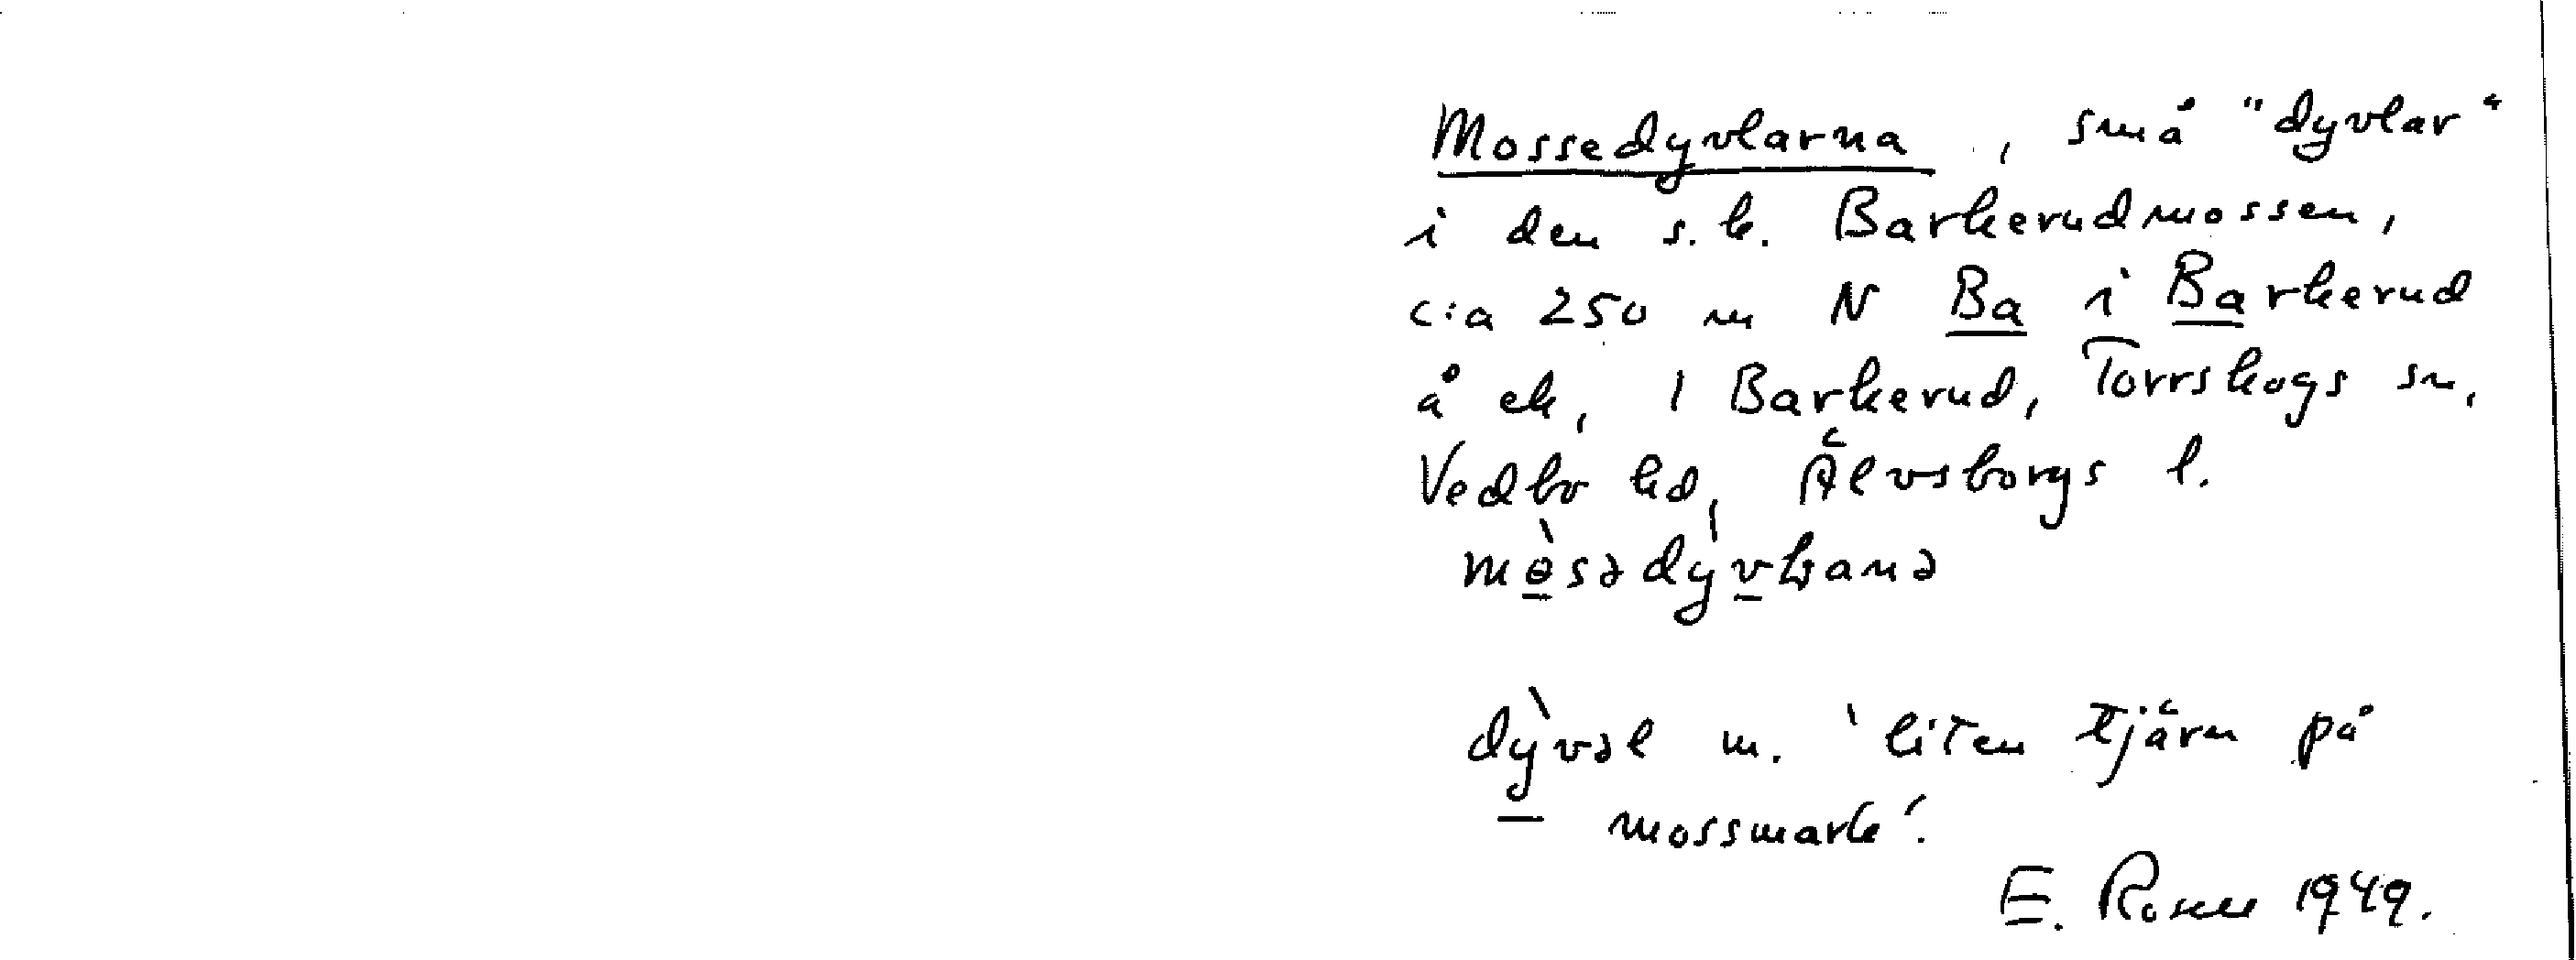 Mossedyvlarna, små "dyvlar"
i den s.k. Barkerudmossen,
c:a 250 m N Ba i Barkerud
å ek, 1 Barkerud, Torrskogs sn,
Vedbo hd, Älvsborgs l.
dỳvəl m. 'liten tjärn på
mossmark'.
E. 1949.